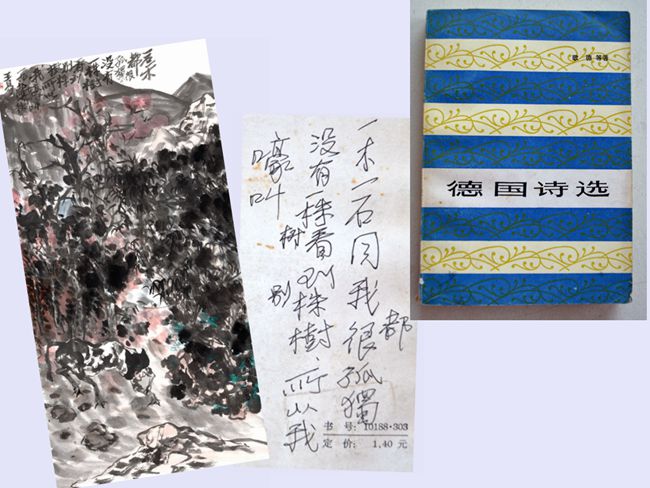 一木一石同我都很孤獨
没有一株樹看到别株樹，所以我
嚎叫
书 号: 10188·303
定 价: 1.40 元
歌 德 等著
德国诗选